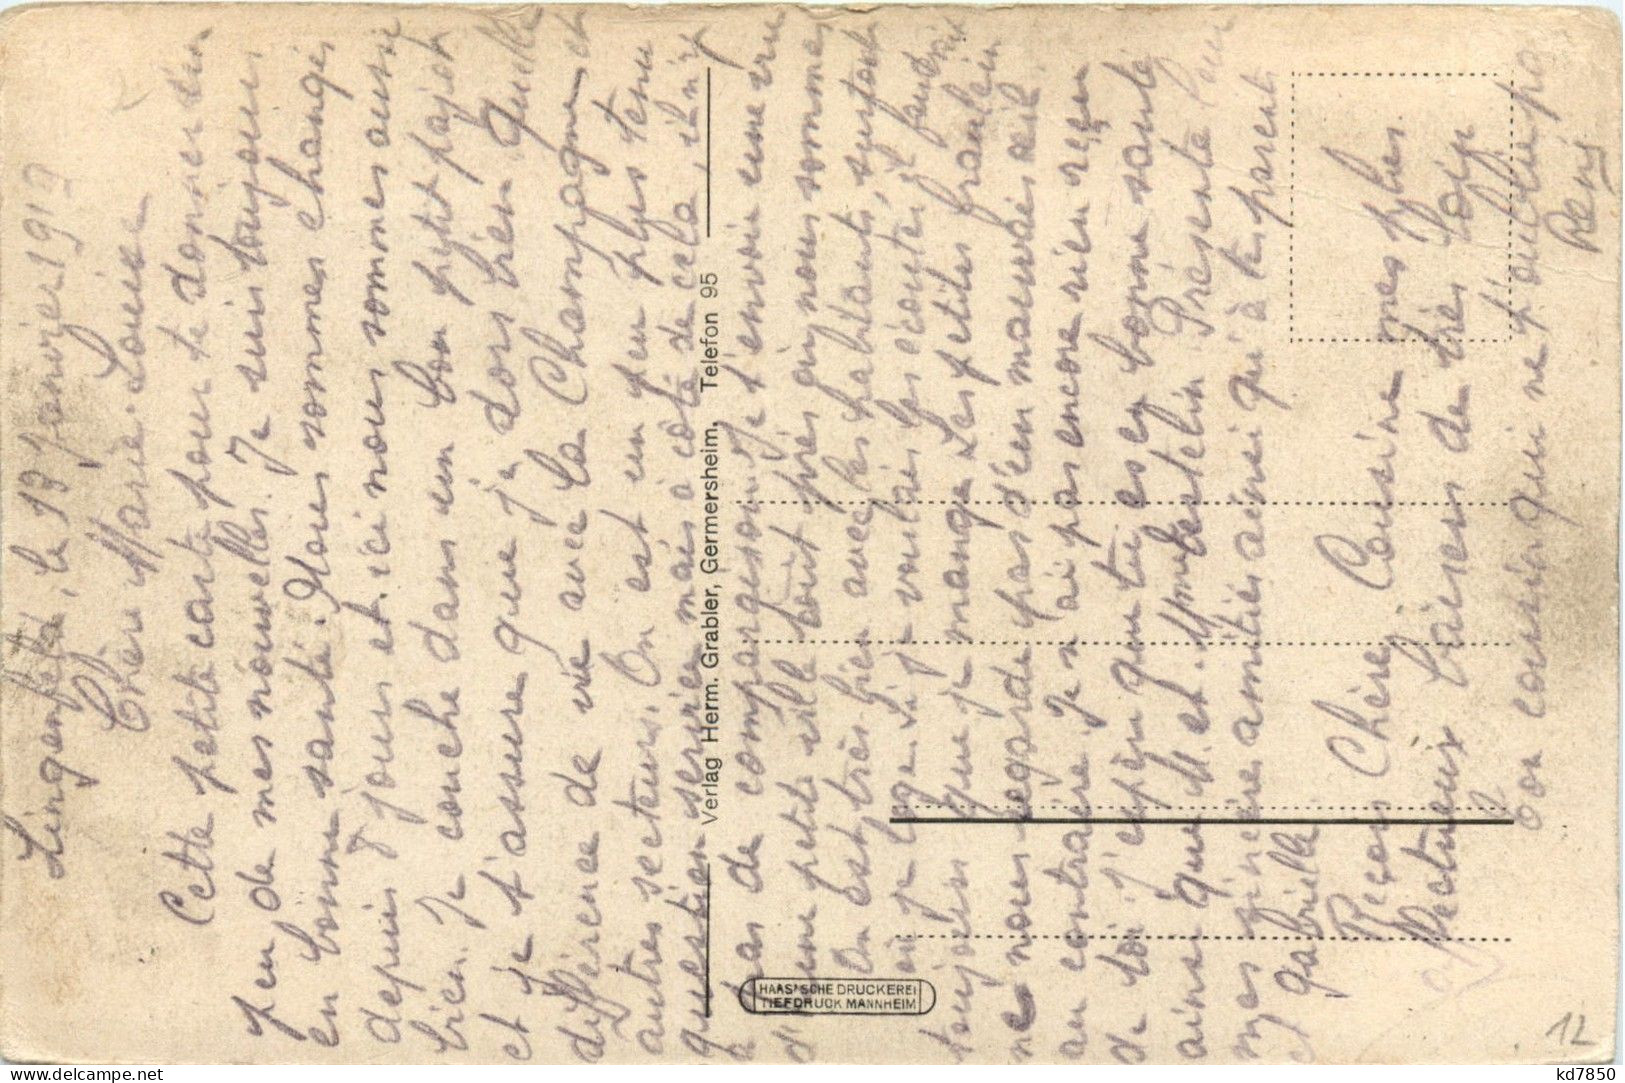 Lingenfeld, le 13 Janvier 1919
Chère Marie-Louise
Cette petite carte pour te donner un
peu de mes nouvelles. Je suis toujours
en bonne santé. Nous sommes changés
depuis 8 jours et ici nous sommes aussi
bien. Je couche dans un bon petit
et je t'assure que je dors bien quelle
différence de vie avec la Champagne et
autres secteurs. On est un peu plus tenu
question service mais à coté de cela, il n'y
a pas de comparaison. Je t'envoie une vue
d'une petite ville tout près où nous sommes
On est très bien avec les habitants, surtout
où je loge. Si je voulais les écouter il faudrait
toujours que je mange. Les petites fraulein
ne nous regarde pas d'un mauvais œil
au contraire. Je n'ai pas encore rien reçu
de toi. J'espère que tu es en bonne santé
ainsi que M. et Mme Présente leur
mes sincères amitiés ainsi qu'à tes parents
et Gabrielle
Reçois Chère Cousine mes plus
affectueux baisers de très loin
Ton cousin qui ne t'oublie pas
Remy
Verlag Herm. Grabler, Germersheim. Telefon 95
HAAS'SCHE DRUCKEREI
TIEFDRUCK MANNHEIM
12
www.delcampe.net
kd7850